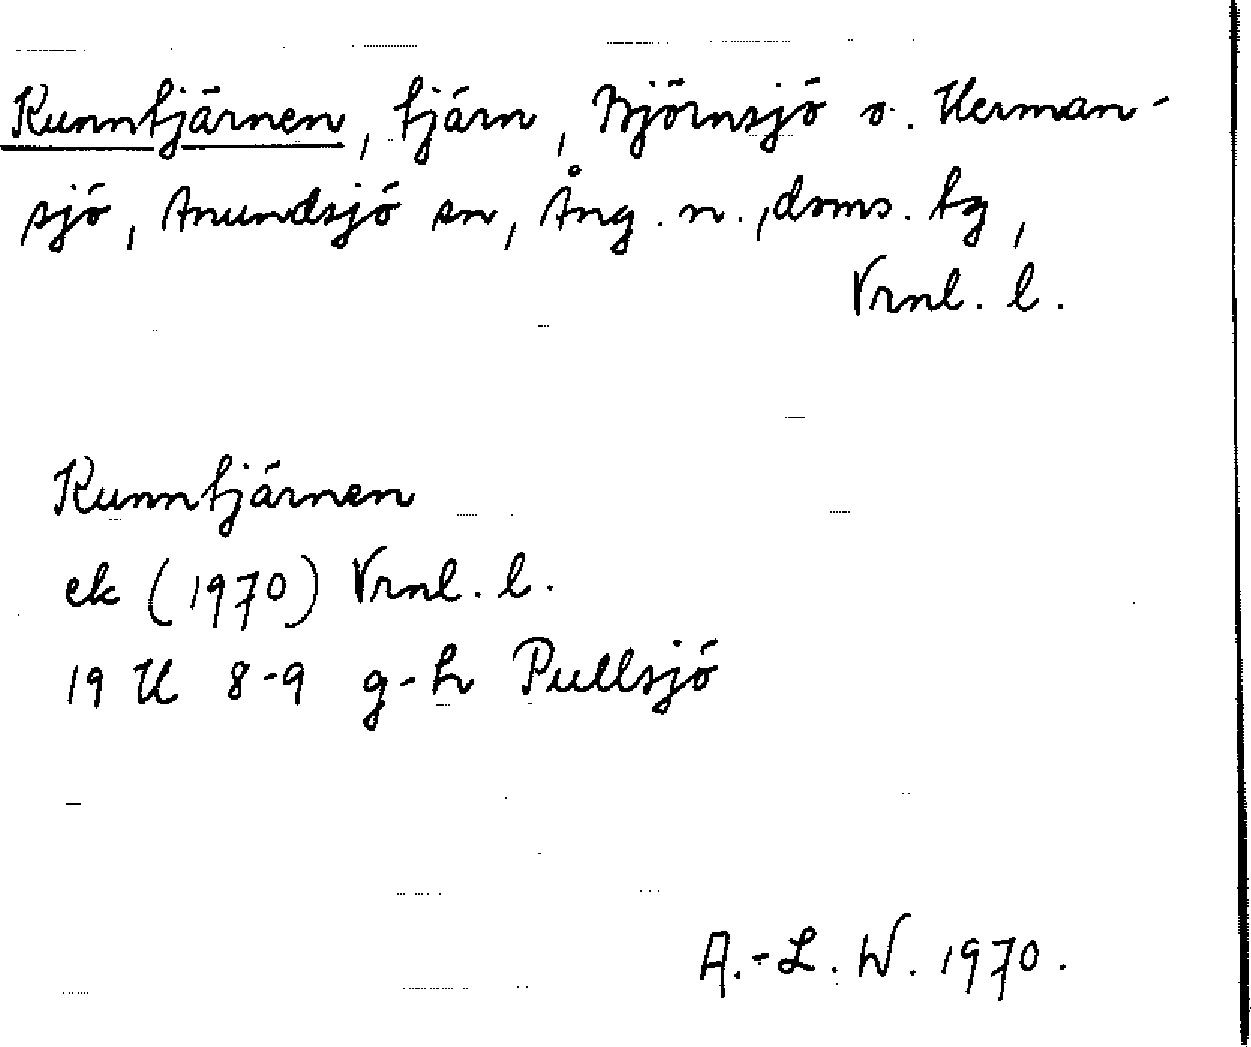 Kunntjärnen, tjärn, Björnsjö o. Herman-
sjö, Anundsjö sn, Ång. n., doms. tg,
Vrnl. l.
Kunntjärnen
ek (1970) Vrnl. l.
19 H 8-9 g-h Pullsjö
A.-L. W. 1970.